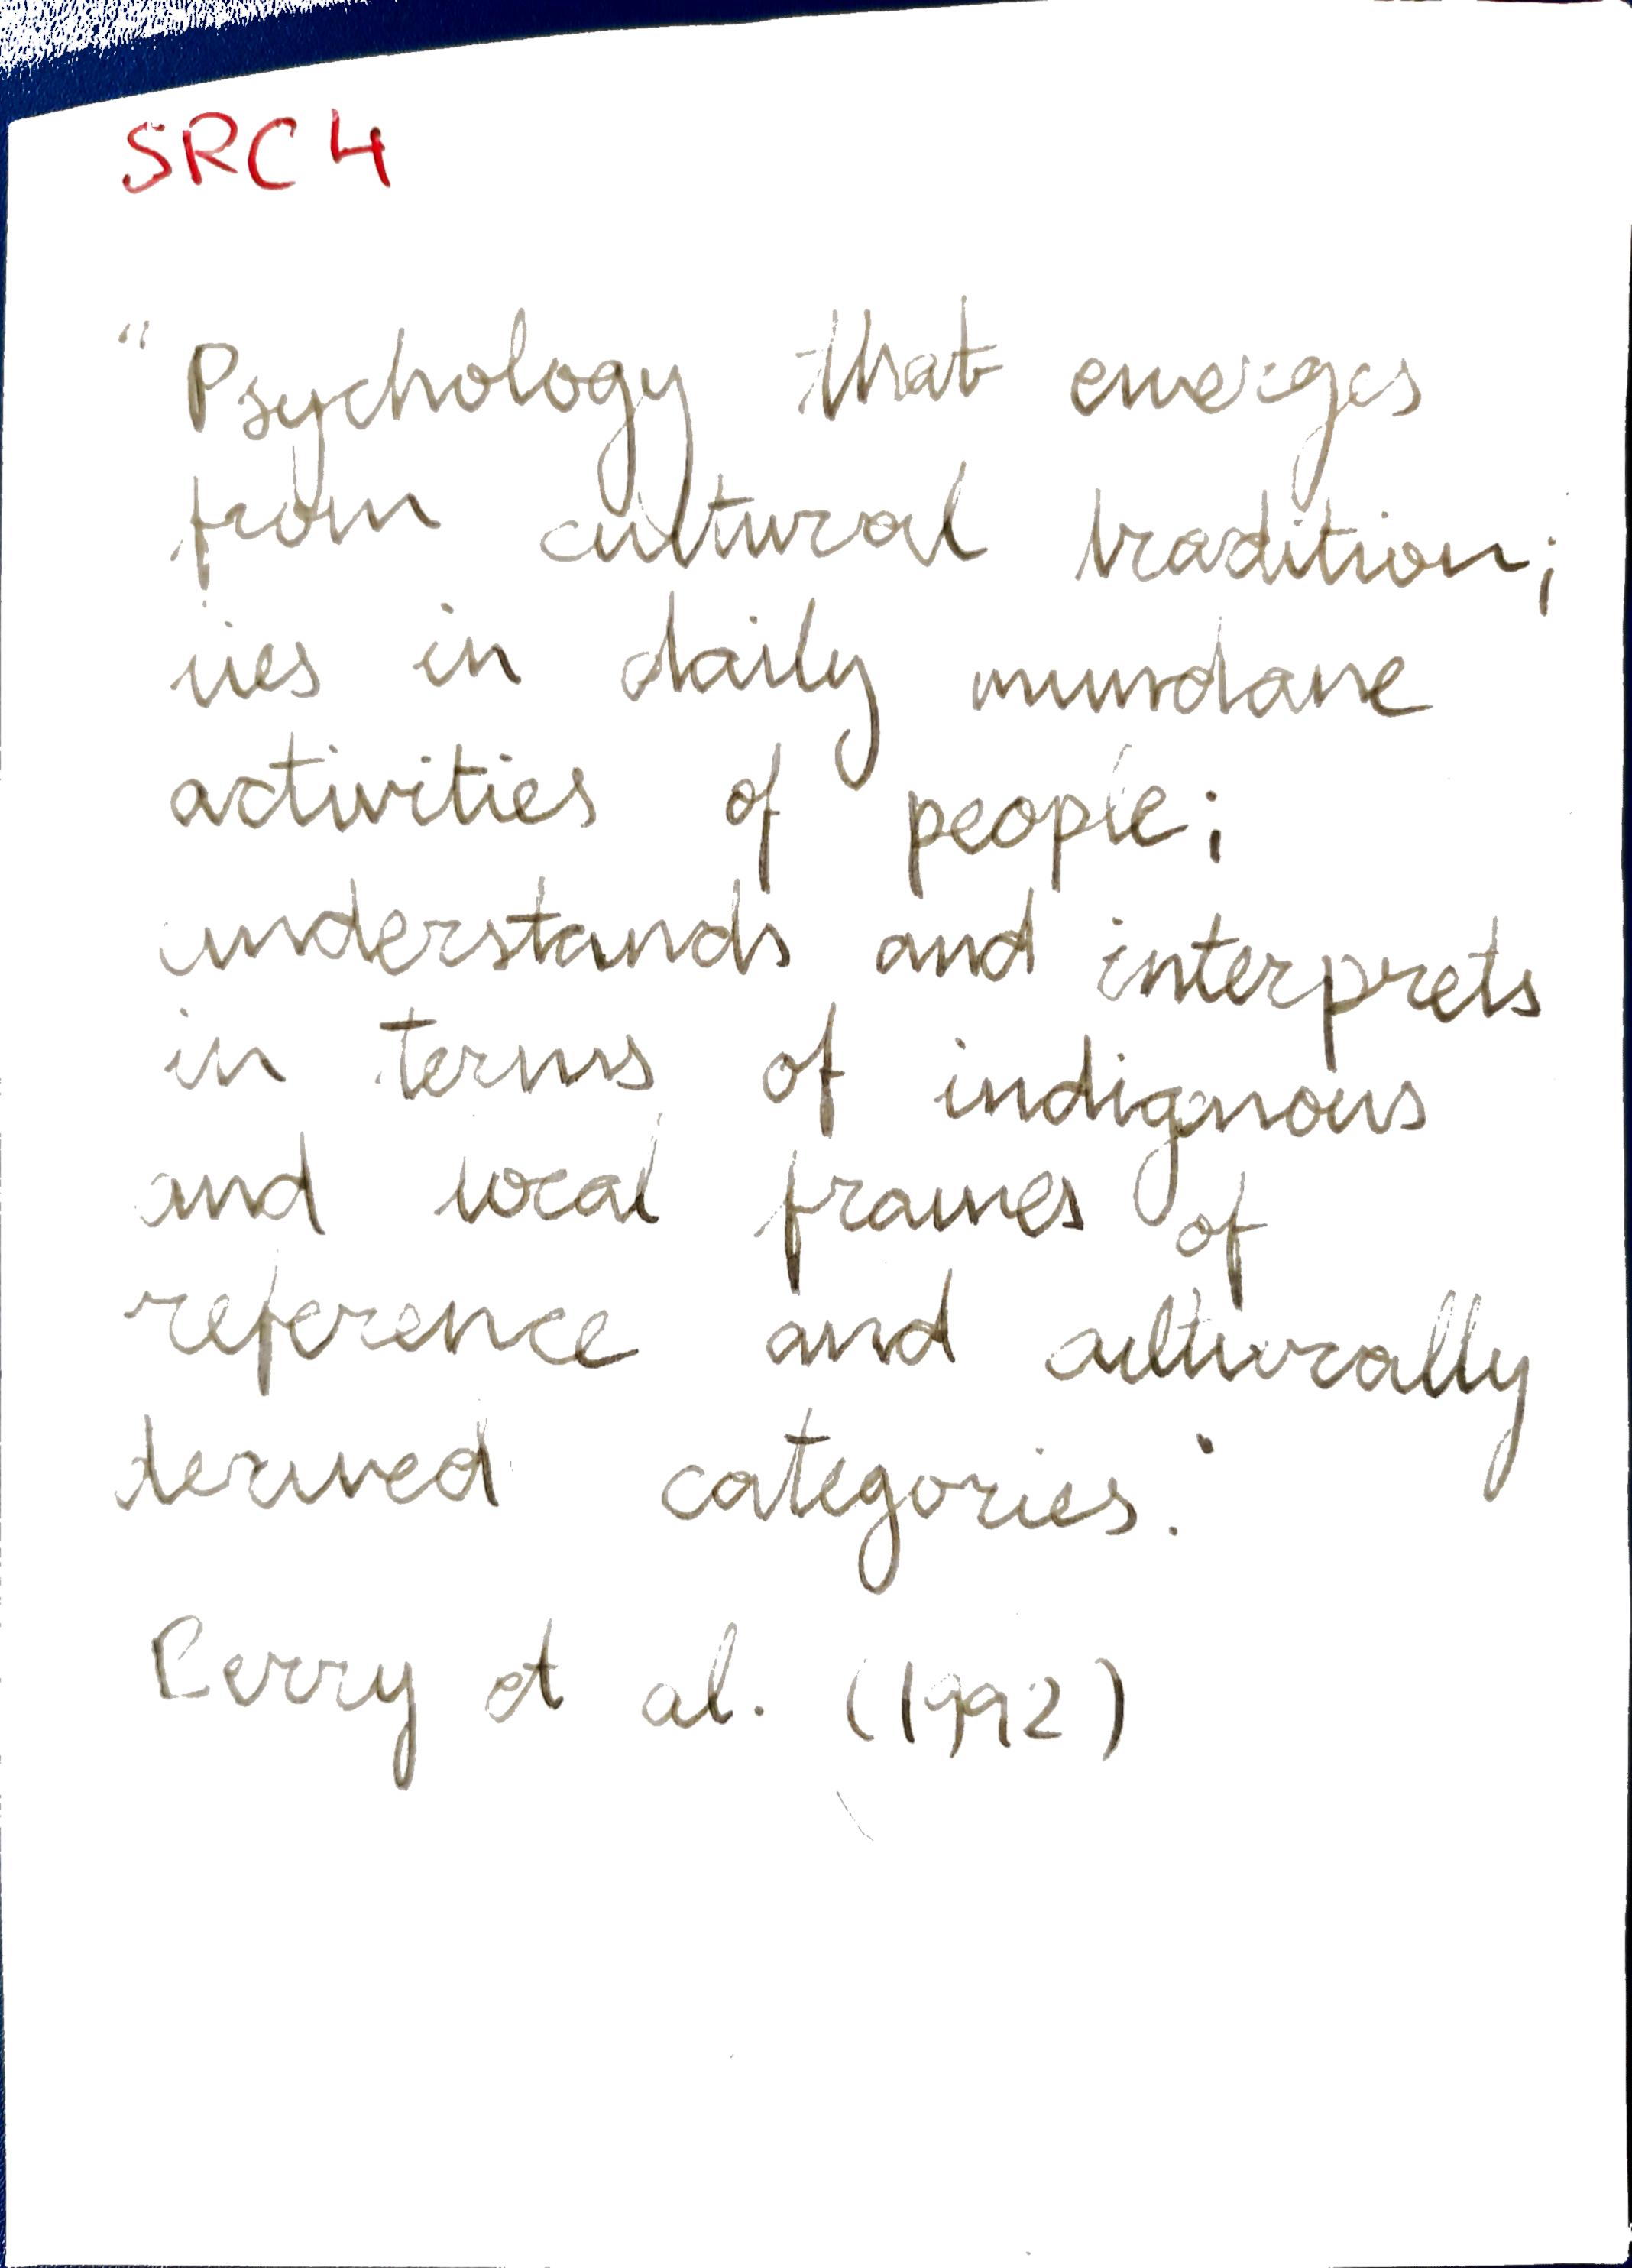 SRC 4
"Psychology that emerges
from cultural tradition;
lies in daily mundane
activities of people;
understands and interprets
in terms of indignous
and local frames of
reference and culturally
derived categories."
Berry et al. (1992)